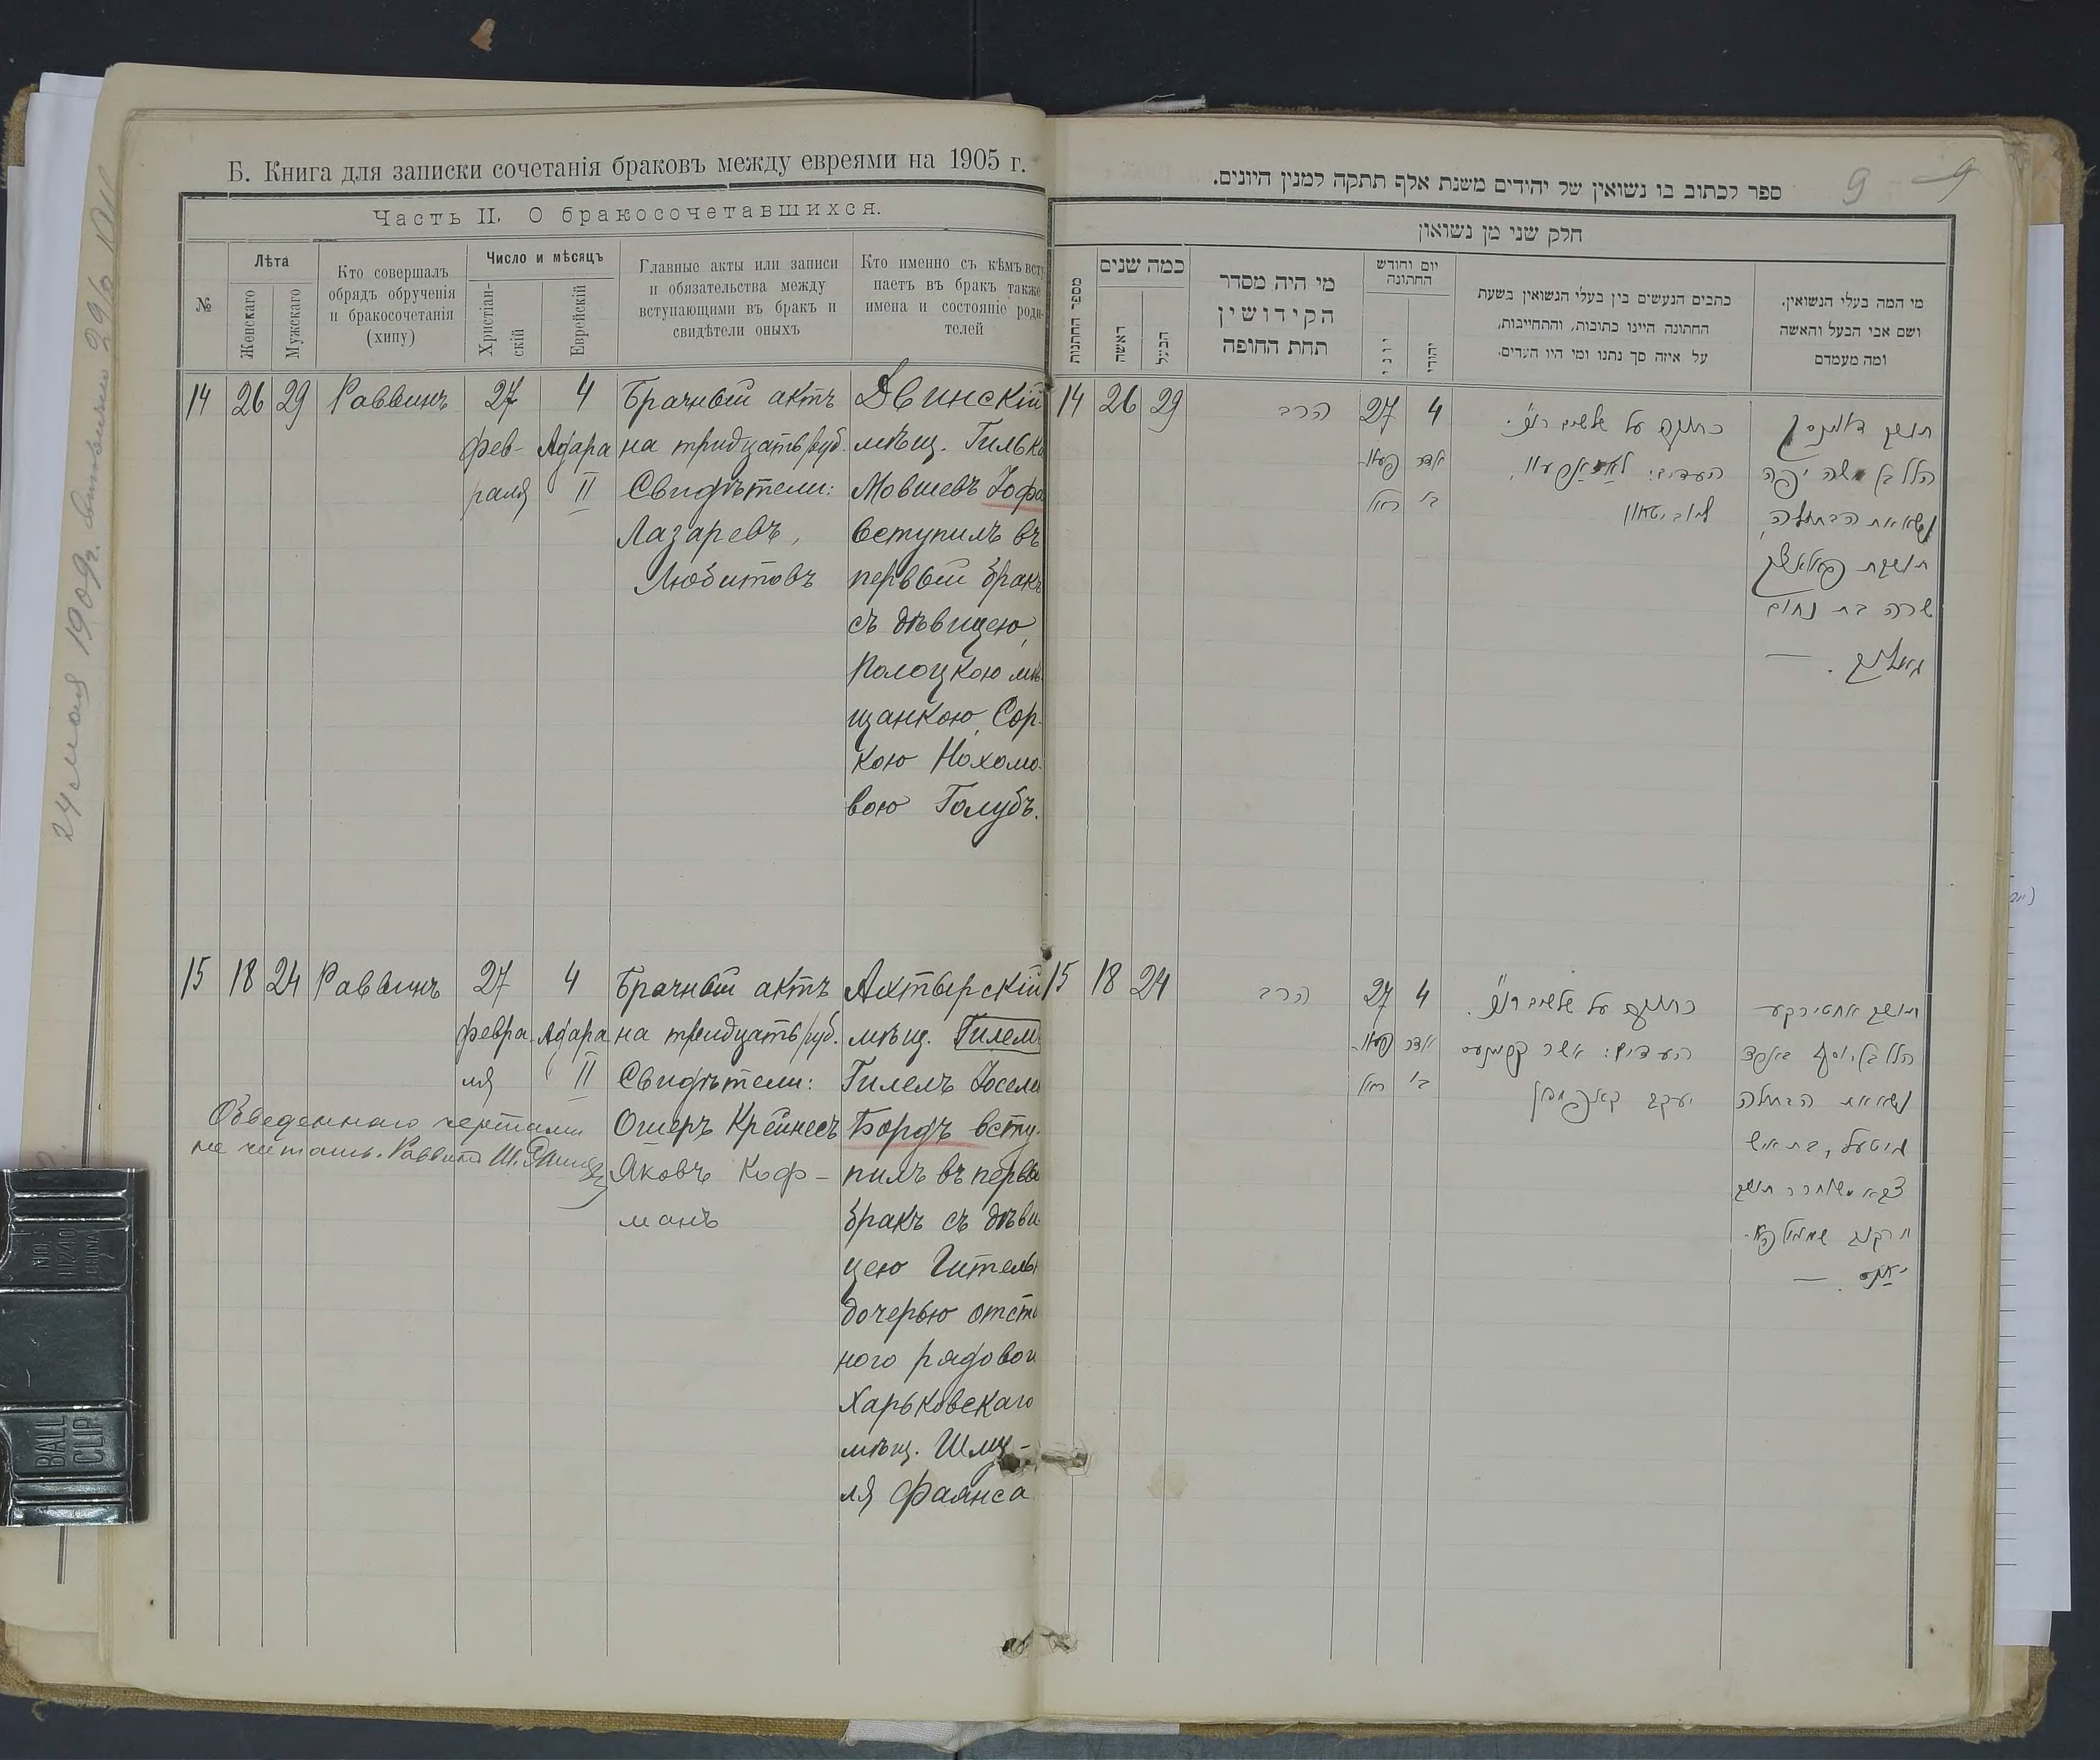 Б. Книга для записки сочетанія браковъ между евреями на 1905 г.
Часть II. О бракосочетавшихся.
№
Лѣта
Женскаго
Мужскаго
Кто совершалъ
обрядъ обрученія
и бракосочетанія
(хипу)
Число и мѣсяцъ
Христіан-
скій
Еврейскій
Главные акты или записи
и обязательства между
вступающими въ бракъ и
свидѣтели оныхъ
Кто именно съ кѣмъ вст
паетъ въ бракъ также
имена и состояніе роди-
телей
14
26
29
Раввинъ
27
фев-
раля
4
Адара
II
Брачный актъ
на тридцать руб.
Свидѣтели:
Лазаревъ,
Любитовъ
Двинскій
мѣщ. Гилько
Мовшевъ Іофе
вступилъ въ
первый бракъ
съ дѣвицею,
Полоцкою мѣ
щанкою, Сор-
кою Нохомо-
вою Голубъ.
15
18
24
Раввинъ
27
февра-
ля
4
Адара
II
Брачный актъ
на тридцать руб.
Свидѣтели:
Ошеръ Крейнесъ
Яковъ Коф-
манъ
Ахтырскій
мѣщ. Гилем
Гилель Іосел
Бордъ всту-
пилъ въ первы
бракъ съ дѣви-
цею Гитель
дочерью отст
ного рядового
Харьковскаго
мѣщ. Шму-
ля Фаянса
Обведеннаго чертами
не читать. Раввинъ Ш.
ספר לכתוב בו נשואין של יהודים משנת אלף תתקה למנין היונים.
9
חלק שני מן נשואון
מספר החתונות
כמה שנים
האשה
הבעל
מי היה מסדר
הקידושין
תחת החופה
יום וחודש
החתונה
יוני
יהודי
כתבים הנעשים בין בעלי הנשואין בשעת
החתונה היינו כתובות, והתחייבות,
על איזה סך נתנו ומי היו העדים.
מי המה בעלי הנשואין.
ושם אבי הבעל והאשה
ומה מעמדם
14
26
29
הרב
27
4
אדר
ב׳
העדים:
הלל בן משה יפה
נשא את הבתולה
שרה בת נחום
15
18
24
הרב
27
4
אדר
ב׳
העדים: אשר
יעקב
הלל בן יוסף
נשא את הבתולה
NO.
11240
CHINA
BALL
CLIP